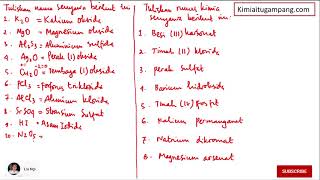 Tuliskan nama senyawa berikut ini
1. K2O = Kalium oksida
2. MgO = Magnesium oksida
3. Al2S3 = Aluminium sulfida
4. Ag2O = Perak (I) oksida
5. Cu2O = Tembaga (I) oksida
6. PCl3 = Fosforus triklorida
7. AlCl3 = Aluminium klorida
8. SrSO4 = Stronsium Sulfat
9. HI = Asam Iodida
10. N2O5 =
Tuliskan rumus kimia
senyawa berikut ini:
1. Besi (III) karbonat
2. Timah (II) klorida
3. perak sulfat
4. Barium hidroksida
5. Timah (IV) fosfat
6. Kalium permanganat
7. Natrium dikromat
8. Magnesium arsenat
Kimiaitugampang.com
SUBSCRIBE